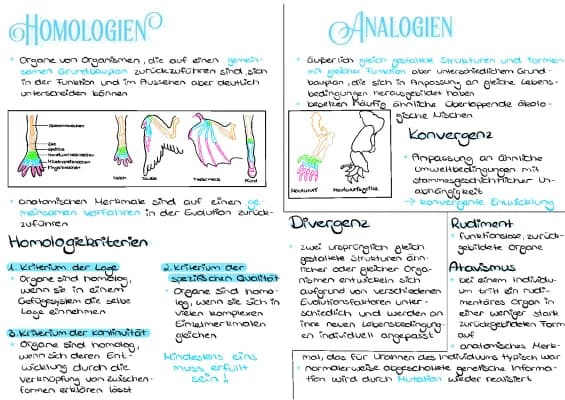 HOMOLOGIEN
• Organe von Organismen, die auf einen gemein-
samen Grundbauplan zurückzuführen sind, sich
in der Funktion und im Aussehen aber deutlich
unterscheiden können
Molch
Taube
Fledermaus
Rind
• anatomischen Merkmale sind auf einen ge
meinsamen Vorfahren in der Evolution zurück-
zuführen
Homologiekriterien
1. Kriterium der Lage
• Organe sind homolog,
wenn sie in einem
Gefügesystem die selbe
Lage einnehmen
2. Kriterium der
spezifischen Qualität
• Organe sind homo-
log, wenn sie sich in
vielen komplexen
Einzelmerkmalen
gleichen
3. Kriterium der Kontinuität
• Organe sind homolog,
wenn sich deren Ent-
wicklung durch die
Verknüpfung von Zwischen-
formen erklären lässt
Mindestens eins
muss erfüllt
sein!
ANALOGIEN
• äußerlich gleich gestaltete Strukturen und Formen
mit gleicher Funktion aber unterschiedlichem Grund-
bauplan, die sich in Anpassung an gleiche Lebens-
bedingungen herausgebildet haben
• besetzen häufig ähnliche überlappende ökolo-
gische Nischen
Maulwurf
Maulwurfsgrille
Konvergenz
• Anpassung an ähnliche
Umweltbedingungen mit
stammesgeschichtlicher Un-
abhängigkeit
→ konvergente Entwicklung
Divergenz
• zwei ursprünglich gleich
gestaltete Strukturen ähn-
licher oder gleicher Orga-
nismen entwickeln sich
aufgrund von verschiedenen
Evolutionsfaktoren unter-
schiedlich und werden an
ihre neuen Lebensbedingung-
en individuell angepasst
Rudiment
• funktionslose, zurück-
gebildete Organe
Atavismus
• bei einem Individu-
um tritt ein rudi-
mentäres Organ in
einer weniger stark
zurückgebildeten Form
auf
• anatomisches Merk-
mal, das für Urahnen des Individuums typisch war
• normalerweise abgeschaltete genetische Informa-
tion wird durch Mutation wieder realisiert